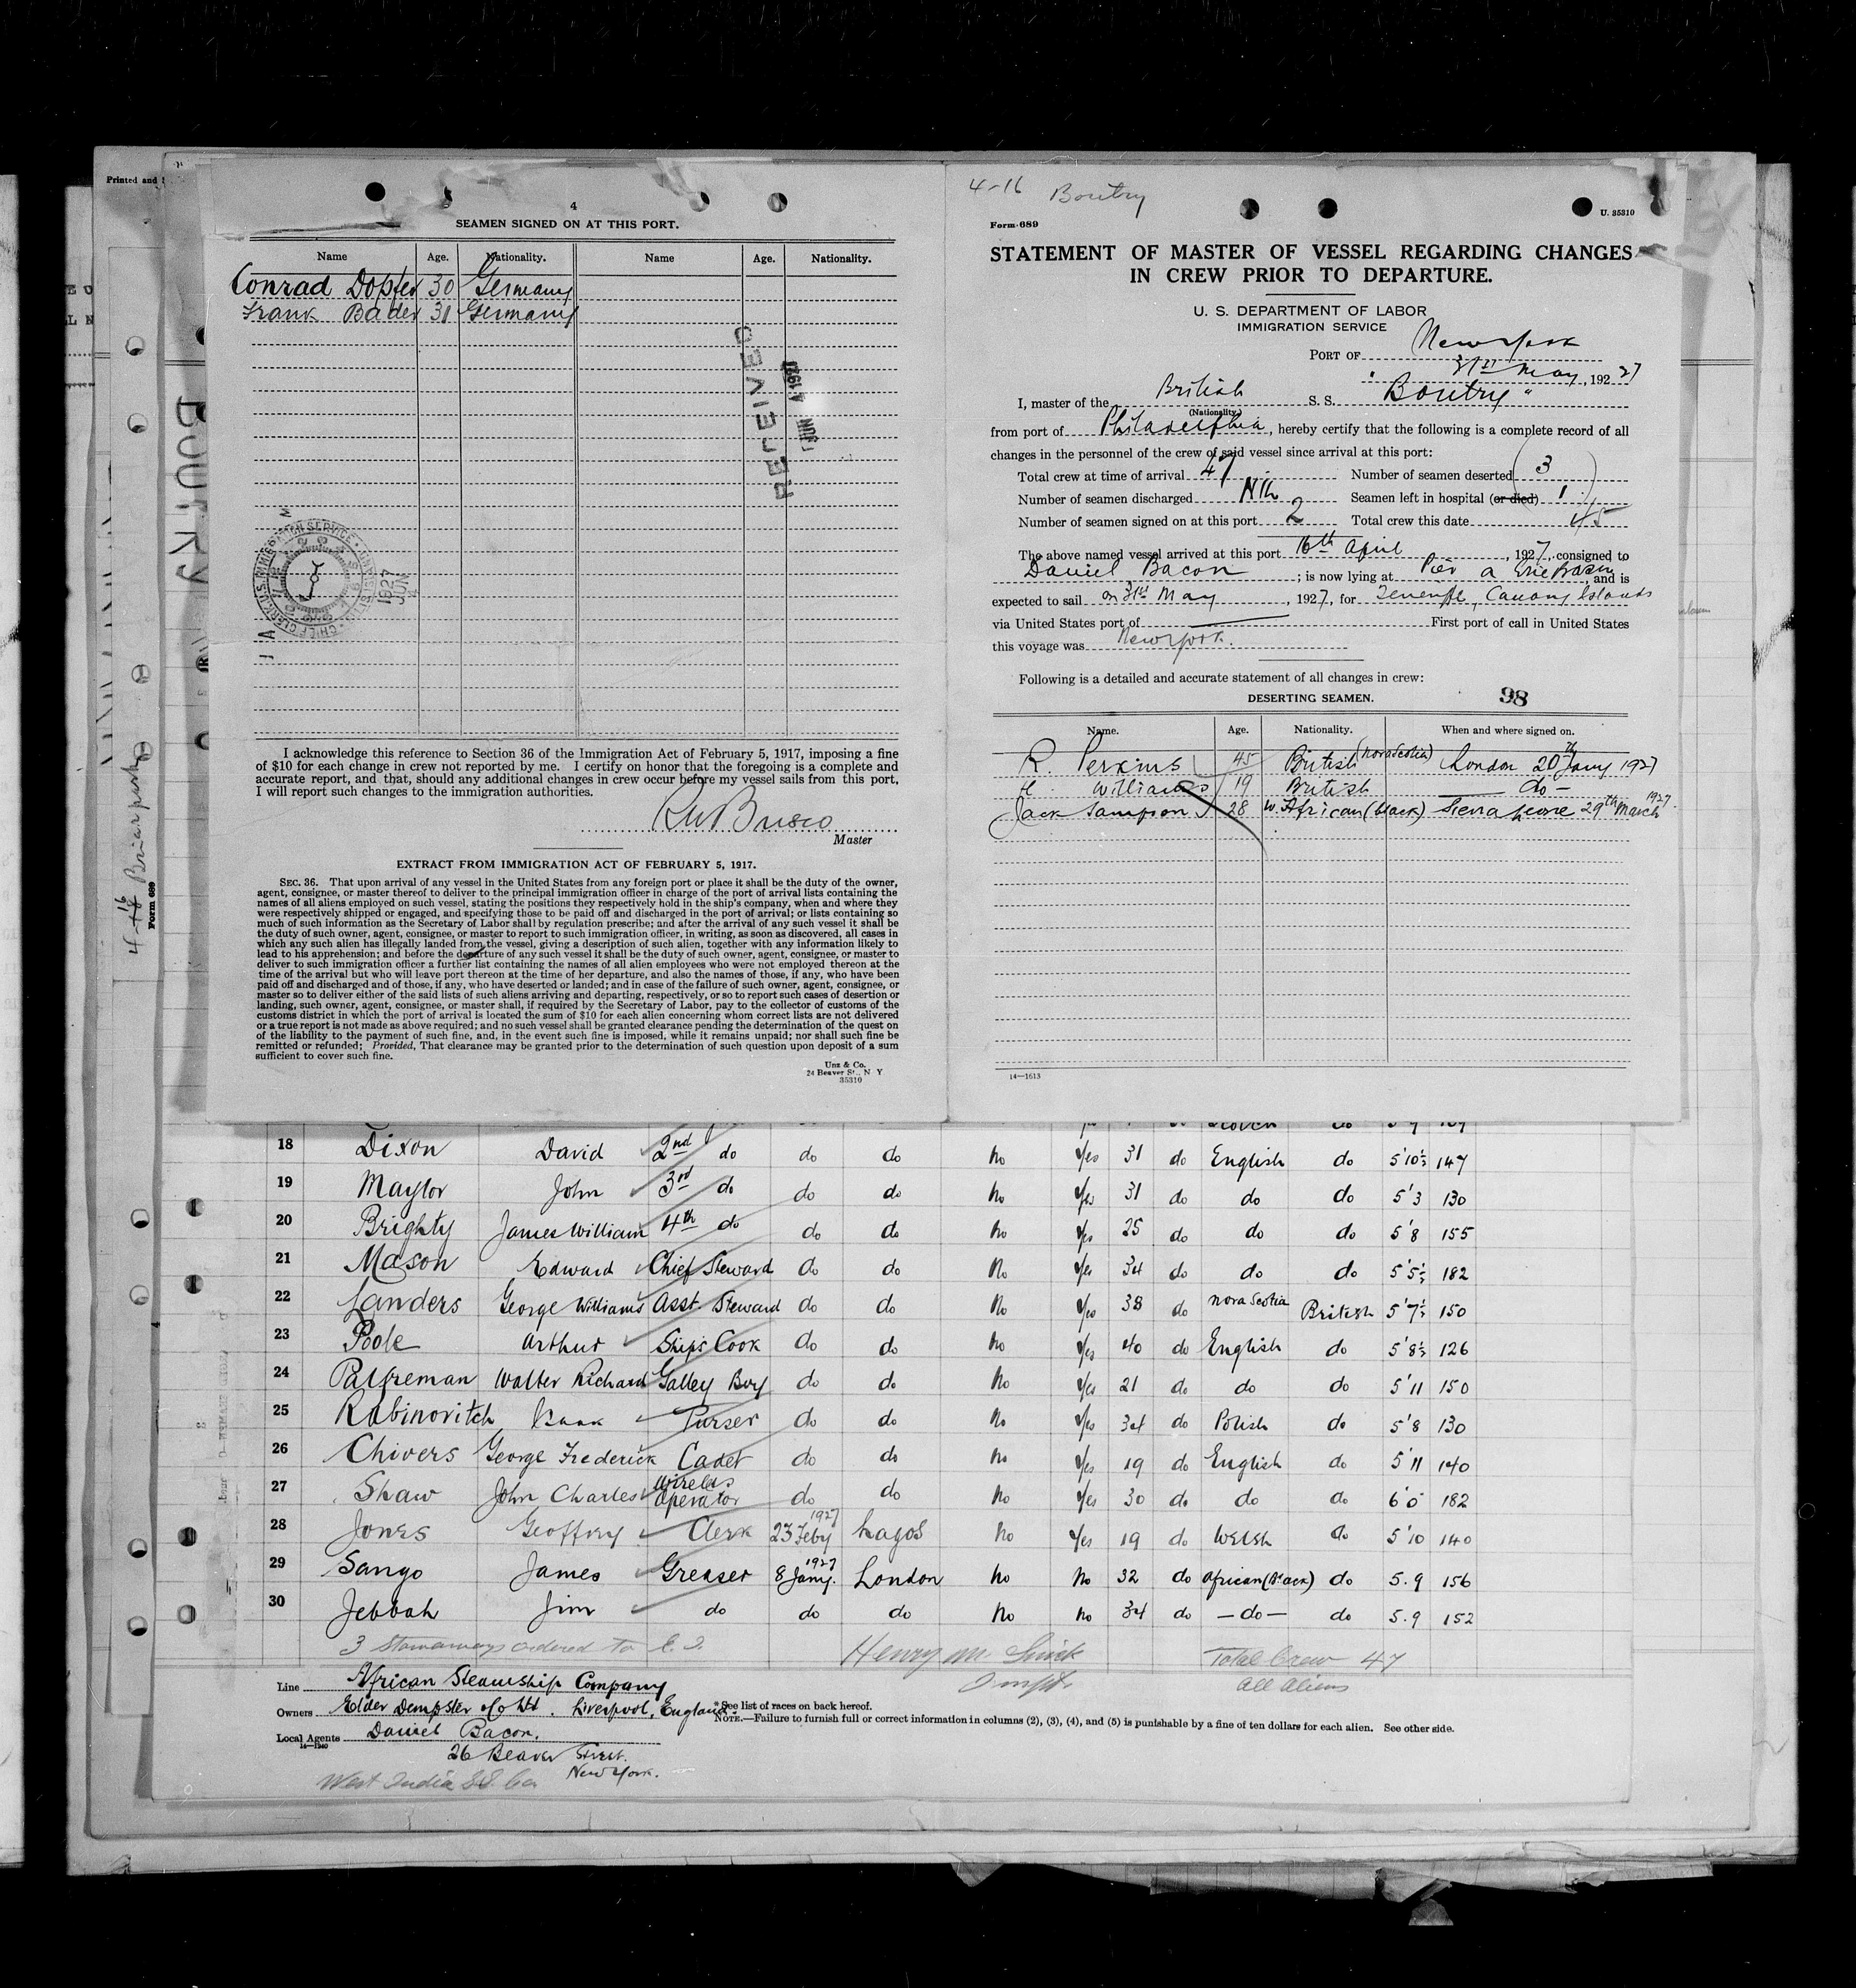 Printed and
4
SEAMEN SIGNED ON AT THIS PORT.
Name Age. Nationality. Name Age. Nationality.
Conrad Dopfer 30 Germany
Frank Bader 31 Germany
RECEIVED
JUN 1 1927
BOUTRY
CHIEF CLERK U.S. IMMIGRATION SERVICE
1927 JUN
I acknowledge this reference to Section 36 of the Immigration Act of February 5, 1917, imposing a fine
of $10 for each change in crew not reported by me. I certify on honor that the foregoing is a complete and
accurate report, and that, should any additional changes in crew occur before my vessel sails from this port,
I will report such changes to the immigration authorities.
Master
EXTRACT FROM IMMIGRATION ACT OF FEBRUARY 5, 1917.
SEC. 36. That upon arrival of any vessel in the United States from any foreign port or place it shall be the duty of the owner,
agent, consignee, or master thereof to deliver to the principal immigration officer in charge of the port of arrival lists containing the
names of all aliens employed on such vessel, stating the positions they respectively hold in the ship's company, when and where they
were respectively shipped or engaged, and specifying those to be paid off and discharged in the port of arrival; or lists containing so
much of such information as the Secretary of Labor shall by regulation prescribe; and after the arrival of any such vessel it shall be
the duty of such owner, agent, consignee, or master to report to such immigration officer, in writing, as soon as discovered, all cases in
which any such alien has illegally landed from the vessel, giving a description of such alien, together with any information likely to
lead to his apprehension; and before the departure of any such vessel it shall be the duty of such owner, agent, consignee, or master to
deliver to such immigration officer a further list containing the names of all alien employees who were not employed thereon at the
time of the arrival but who will leave port thereon at the time of her departure, and also the names of those, if any, who have been
paid off and discharged and of those, if any, who have deserted or landed; and in case of the failure of such owner, agent, consignee, or
master so to deliver either of the said lists of such aliens arriving and departing, respectively, or so to report such cases of desertion or
landing, such owner, agent, consignee, or master shall, if required by the Secretary of Labor, pay to the collector of customs of the
customs district in which the port of arrival is located the sum of $10 for each alien concerning whom correct lists are not delivered
or a true report is not made as above required; and no such vessel shall be granted clearance pending the determination of the quest on
of the liability to the payment of such fine, and, in the event such fine is imposed, while it remains unpaid; nor shall such fine be
remitted or refunded; Provided, That clearance may be granted prior to the determination of such question upon deposit of a sum
sufficient to cover such fine.
Unz & Co.
24 Beaver St., N Y
35310
4-16 Boutry
Form 689
U. 35310
STATEMENT OF MASTER OF VESSEL REGARDING CHANGES
IN CREW PRIOR TO DEPARTURE.
U. S. DEPARTMENT OF LABOR
IMMIGRATION SERVICE
PORT OF New York
31st May, 192 27
I, master of the British S. S. "Boutry"
(Nationality.)
from port of Philadelphia, hereby certify that the following is a complete record of all
changes in the personnel of the crew of said vessel since arrival at this port:
Total crew at time of arrival 47 Number of seamen deserted 3
Number of seamen discharged Nil Seamen left in hospital (or died) 1
Number of seamen signed on at this port 2 Total crew this date 45
The above named vessel arrived at this port 16th April, 1927, consigned to
Daniel Bacon; is now lying at Pier a Erie Basin, and is
expected to sail on 31st May, 1927, for Teneriffe, Canary Islands
via United States port of First port of call in United States
this voyage was New York.
Following is a detailed and accurate statement of all changes in crew:
DESERTING SEAMEN. 98
Name. Age. Nationality. When and where signed on.
R. Perkins 45 British (Nova Scotia) London 20th Jany 1927
H. Williams 19 British do
Jack Sampson 28 W. African (black) Sierra Leone 29th March 1927
14—1613
4-16 Briarpark
Form 689
18 Dixon David 2nd do do do No Yes 31 do English do 5'10½ 147
19 Maylor John 3rd do do do No Yes 31 do do do 5'3 130
20 Brighty James William 4th do do do No Yes 25 do do do 5'8 155
21 Mason Edward Chief Steward do do No Yes 34 do do do 5'5½ 182
22 Landers George Williams Asst. Steward do do No Yes 38 do Nova Scotia British 5'7½ 150
23 Poole Arthur Ship's Cook do do No Yes 40 do English do 5'8½ 126
24 Palfreman Walter Richard Galley Boy do do No Yes 21 do do do 5'11 150
25 Rabinovitch Isaak Purser do do No Yes 34 do Polish do 5'8 130
26 Chivers George Frederick Cadet do do No Yes 19 do English do 5'11 140
27 Shaw John Charles Wireless Operator do do No Yes 30 do do do 6'0 182
28 Jones Geoffrey Clerk 23 Feby 1927 Lagos No Yes 19 do Welsh do 5'10 140
29 Sango James Greaser 8 Jany. 1927 London No No 32 do African (Black) do 5.9 156
30 Jebbah Jim do do do No No 34 do —do— do 5.9 152
3 stowaways ordered to E. I. Henry M. Total Crew 47
All aliens
Line African Steamship Company
Owners Elder Dempster & Co Ltd. Liverpool, England
* See list of races on back hereof.
NOTE.—Failure to furnish full or correct information in columns (2), (3), (4), and (5) is punishable by a fine of ten dollars for each alien. See other side.
Local Agents Daniel Bacon.
26 Beaver Street.
New York.
West India SS Co